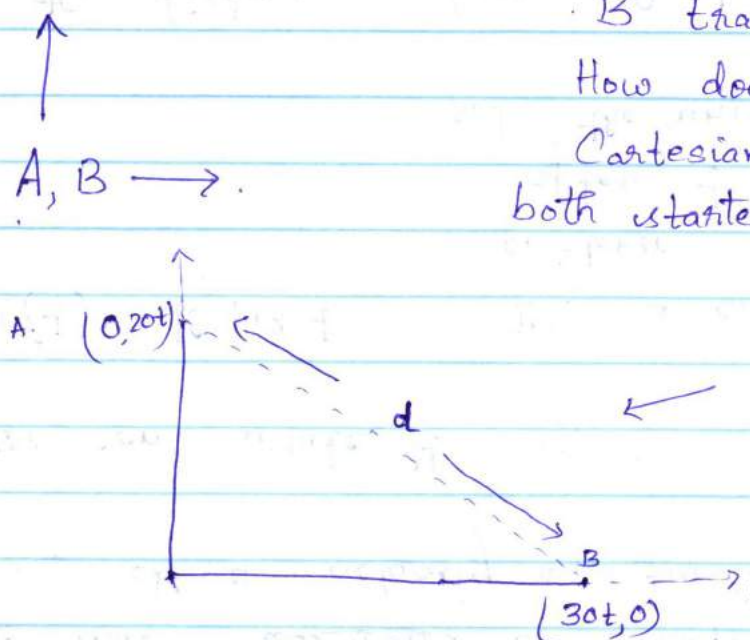 B tra
How do
Cartesian
A, B
both starte
A. (0,20t)
d
B
(30t,0)